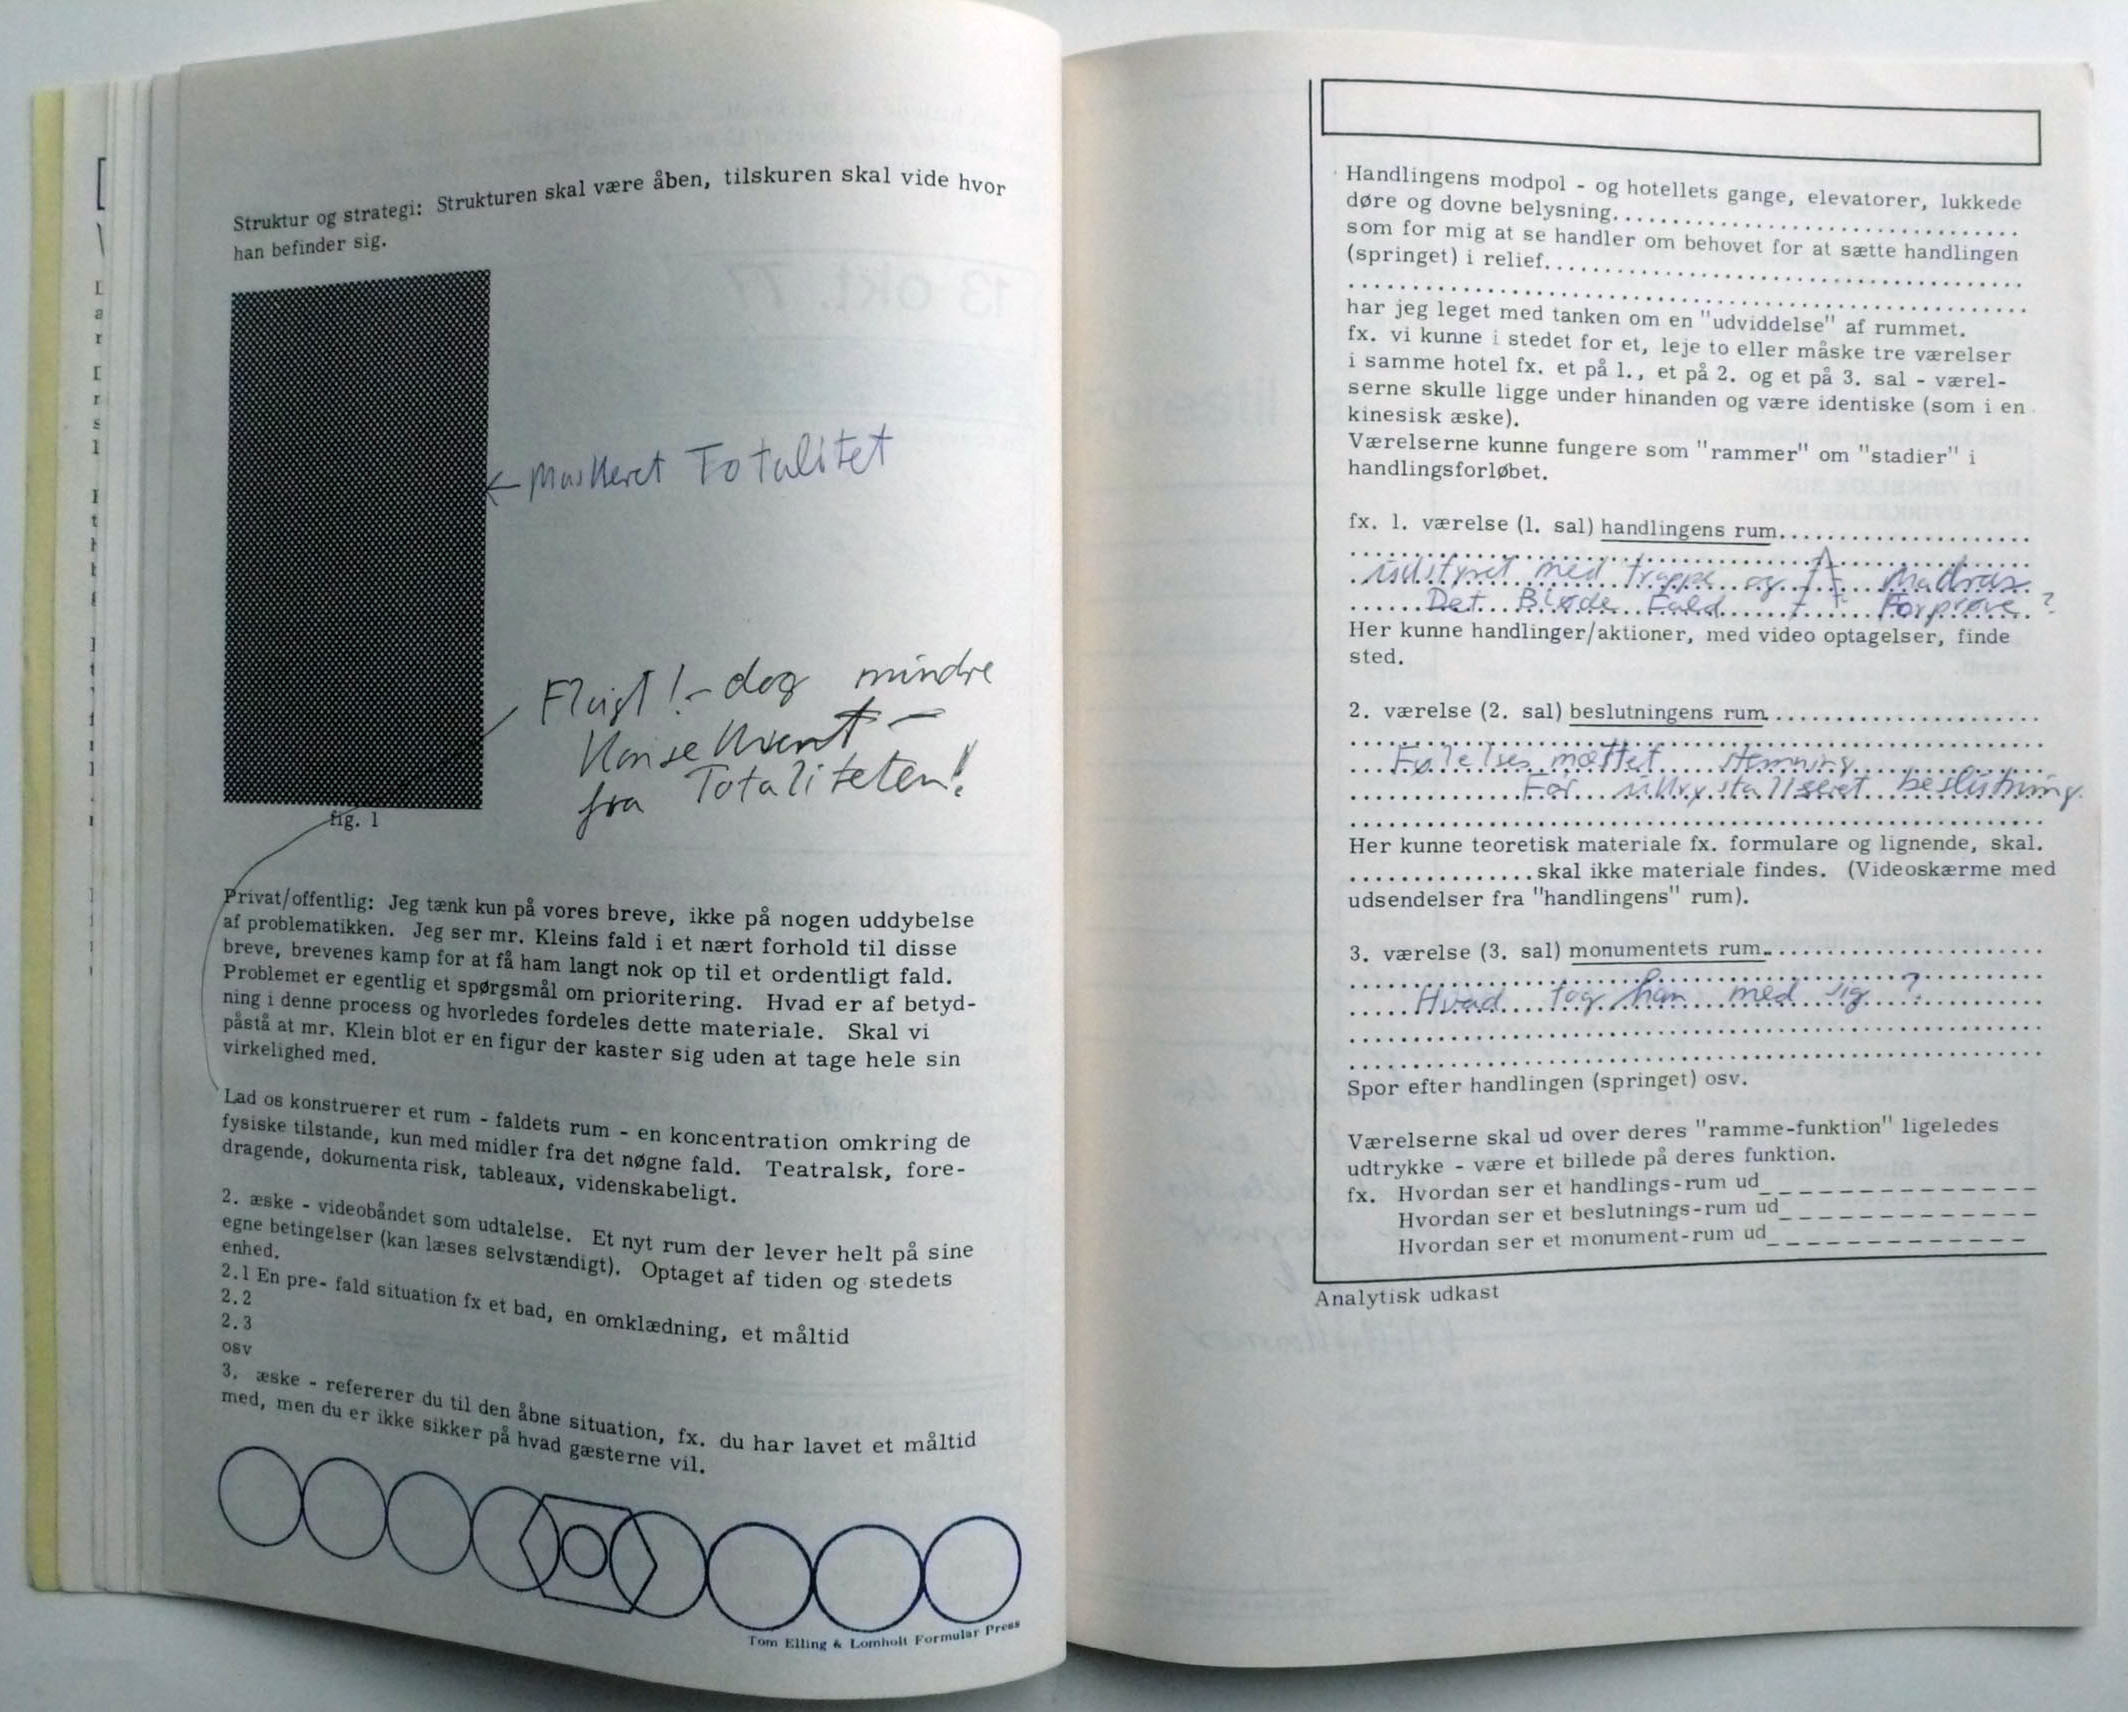 Struktur og strategi: Strukturen skal være åben, tilskuren skal vide hvor
han befinder sig.
← Maskeret Totalitet
Flugt! - dog mindre
Konsekvent -
fra Totaliteten!
fig. 1
Privat/offentlig: Jeg tænk kun på vores breve, ikke på nogen uddybelse
af problematikken. Jeg ser mr. Kleins fald i et nært forhold til disse
breve, brevenes kamp for at få ham langt nok op til et ordentligt fald.
Problemet er egentlig et spørgsmål om prioritering. Hvad er af betyd-
ning i denne process og hvorledes fordeles dette materiale. Skal vi
påstå at mr. Klein blot er en figur der kaster sig uden at tage hele sin
virkelighed med.
Lad os konstruerer et rum - faldets rum - en koncentration omkring de
fysiske tilstande, kun med midler fra det nøgne fald. Teatralsk, fore-
dragende, dokumentarisk, tableaux, videnskabeligt.
2. æske - videobåndet som udtalelse. Et nyt rum der lever helt på sine
egne betingelser (kan læses selvstændigt). Optaget af tiden og stedets
enhed.
2.1 En pre- fald situation fx et bad, en omklædning, et måltid
2.2
2.3
osv
3. æske - refererer du til den åbne situation, fx. du har lavet et måltid
med, men du er ikke sikker på hvad gæsterne vil.
Tom Elling & Lomholt Formular Press
Handlingens modpol - og hotellets gange, elevatorer, lukkede
døre og dovne belysning..............................
som for mig at se handler om behovet for at sætte handlingen
(springet) i relief..............................
har jeg leget med tanken om en "udviddelse" af rummet.
fx. vi kunne i stedet for et, leje to eller måske tre værelser
i samme hotel fx. et på 1., et på 2. og et på 3. sal - værel-
serne skulle ligge under hinanden og være identiske (som i en
kinesisk æske).
Værelserne kunne fungere som "rammer" om "stadier" i
handlingsforløbet.
fx. 1. værelse (1. sal) handlingens rum....................
udstyret med trappe og Madras
Det Bløde Fald Forprøve?
Her kunne handlinger/aktioner, med video optagelser, finde
sted.
2. værelse (2. sal) beslutningens rum....................
Følelsesmættet stemning
For ukrystalliseret beslutning
Her kunne teoretisk materiale fx. formulare og lignende, skal.
...............skal ikke materiale findes. (Videoskærme med
udsendelser fra "handlingens" rum).
3. værelse (3. sal) monumentets rum....................
Hvad tog han med sig ?
Spor efter handlingen (springet) osv.
Værelserne skal ud over deres "ramme-funktion" ligeledes
udtrykke - være et billede på deres funktion.
fx. Hvordan ser et handlings-rum ud_ _ _ _ _ _ _ _ _ _ _ _
Hvordan ser et beslutnings-rum ud_ _ _ _ _ _ _ _ _ _ _ _
Hvordan ser et monument-rum ud_ _ _ _ _ _ _ _ _ _ _ _
Analytisk udkast